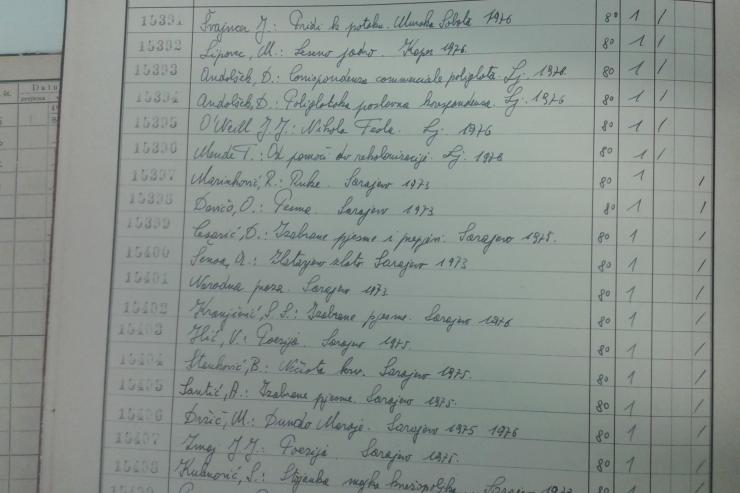 15391 Švajncer J.: Pridi k potoku. Murska Sobota 1976 80 1 /
15392 Lipovec, M.: jadro. Koper 1976. 80 1 /
15393 Andolšek, D.: Corrispondenza commerciale poliglotta. Lj. 1976. 80 1 /
15394 Andolšek, D.: Poliglotska poslovna korespondenca. Lj. 1976 80 1 /
15395 O'Neill J. J.: Nikola Tesla. Lj. 1976 80 1 /
15396 Mende T.: Od pomoči do rekolonizacije. Lj. 1976 80 1 /
15397 Marinković, R.: Ruke. Sarajevo 1973 80 1 /
15398 Davičo, O.: Pesma. Sarajevo 1973 80 1 /
15399 Cesarić, D.: Izabrane pjesme i prepjevi. Sarajevo 1975. 80 1 /
15400 Šenoa, A.: Zlatarjevo zlato Sarajevo 1973 80 1 /
15401 Narodna Sarajevo 1973 80 1 /
15402 Kranjčević, S. S.: Izabrane pjesme. Sarajevo 1976 80 1 /
15403 Ilić, V.: Poezija. Sarajevo 1975. 80 1 /
15404 Stanković, B.: Nečista krv. Sarajevo 1975. 80 1 /
15405 Šantić, A.: Izabrane pjesme. Sarajevo 1975. 80 1 /
15406 Držić, M.: Dundo Maroje. Sarajevo 1975 1976 80 1 /
15407 Zmaj J. J.: Poezija. Sarajevo 1975. 80 1 /
15408 Kulenović, S.: Stojanka majka knežopoljka. Sarajevo 80 1 /